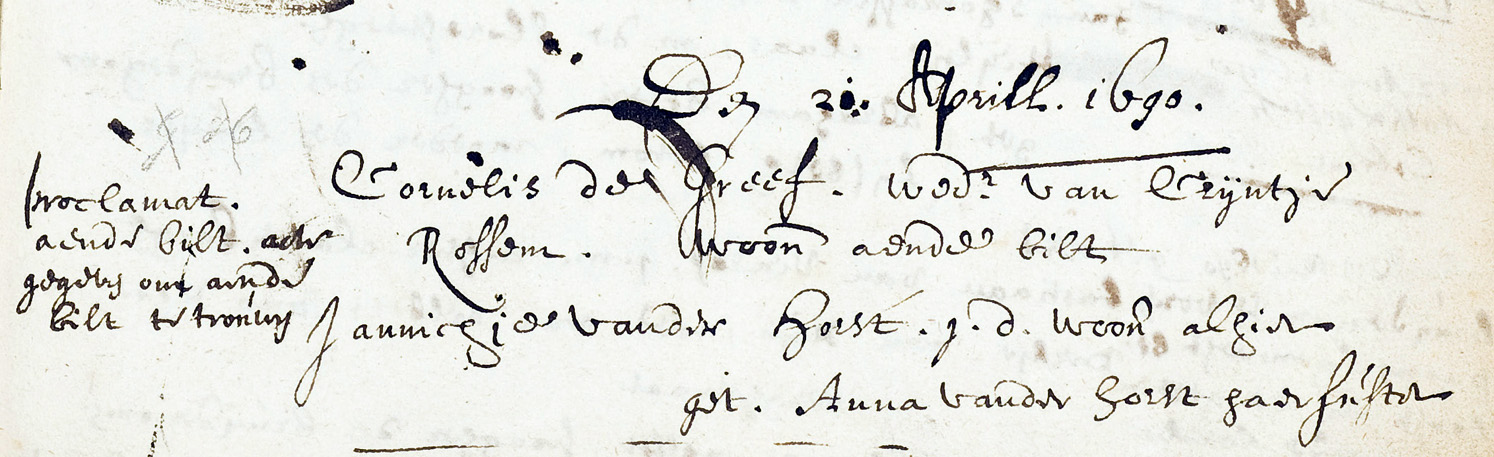 Den 21. Aprill. 1690.
Cornelis de Greef. wedr van Crijntje
Rossem. woon aende bilt
Jannichje vander Horst. j. d. woon alhier
get. Anna vander horst haer suster
proclamat.
aende bilt. acte
gegeven om aende
bilt te trouwen